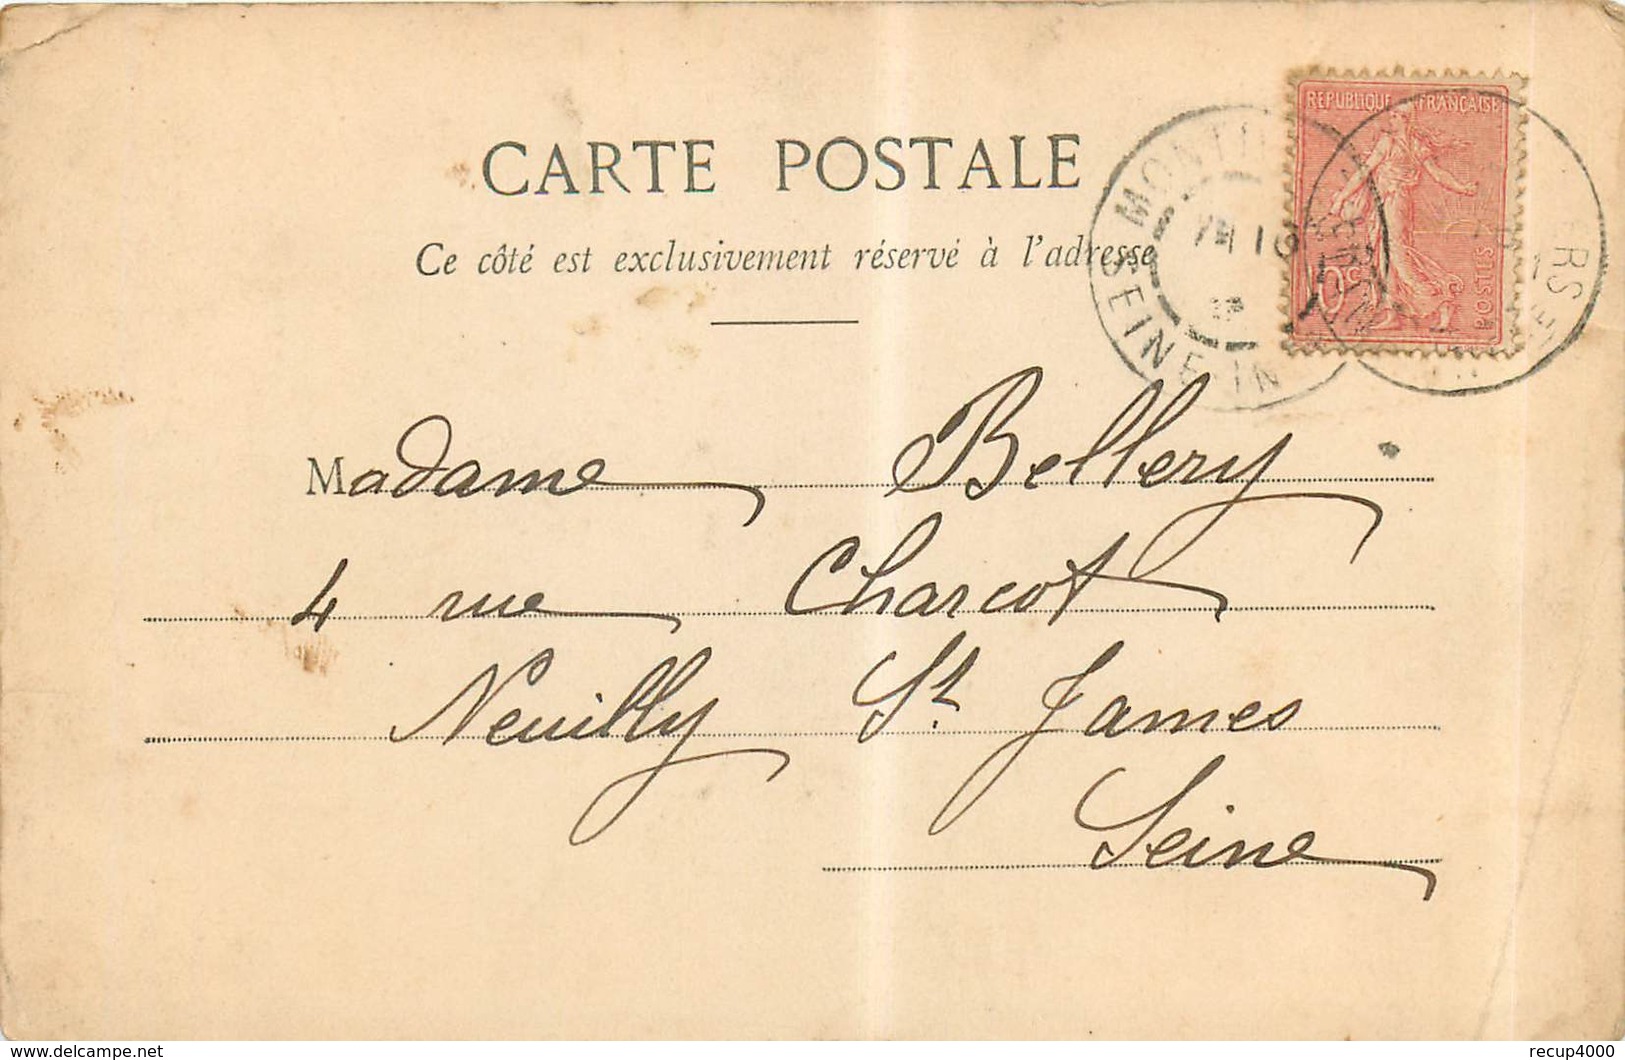 CARTE POSTALE
Ce côté est exclusivement réservé à l'adresse
REPUBLIQUE FRANÇAISE
10c
POSTES
SEINE IN
Madame Bellery
4 rue Charcot
Neuilly St. James
Seine
www.delcampe.net
recup4000